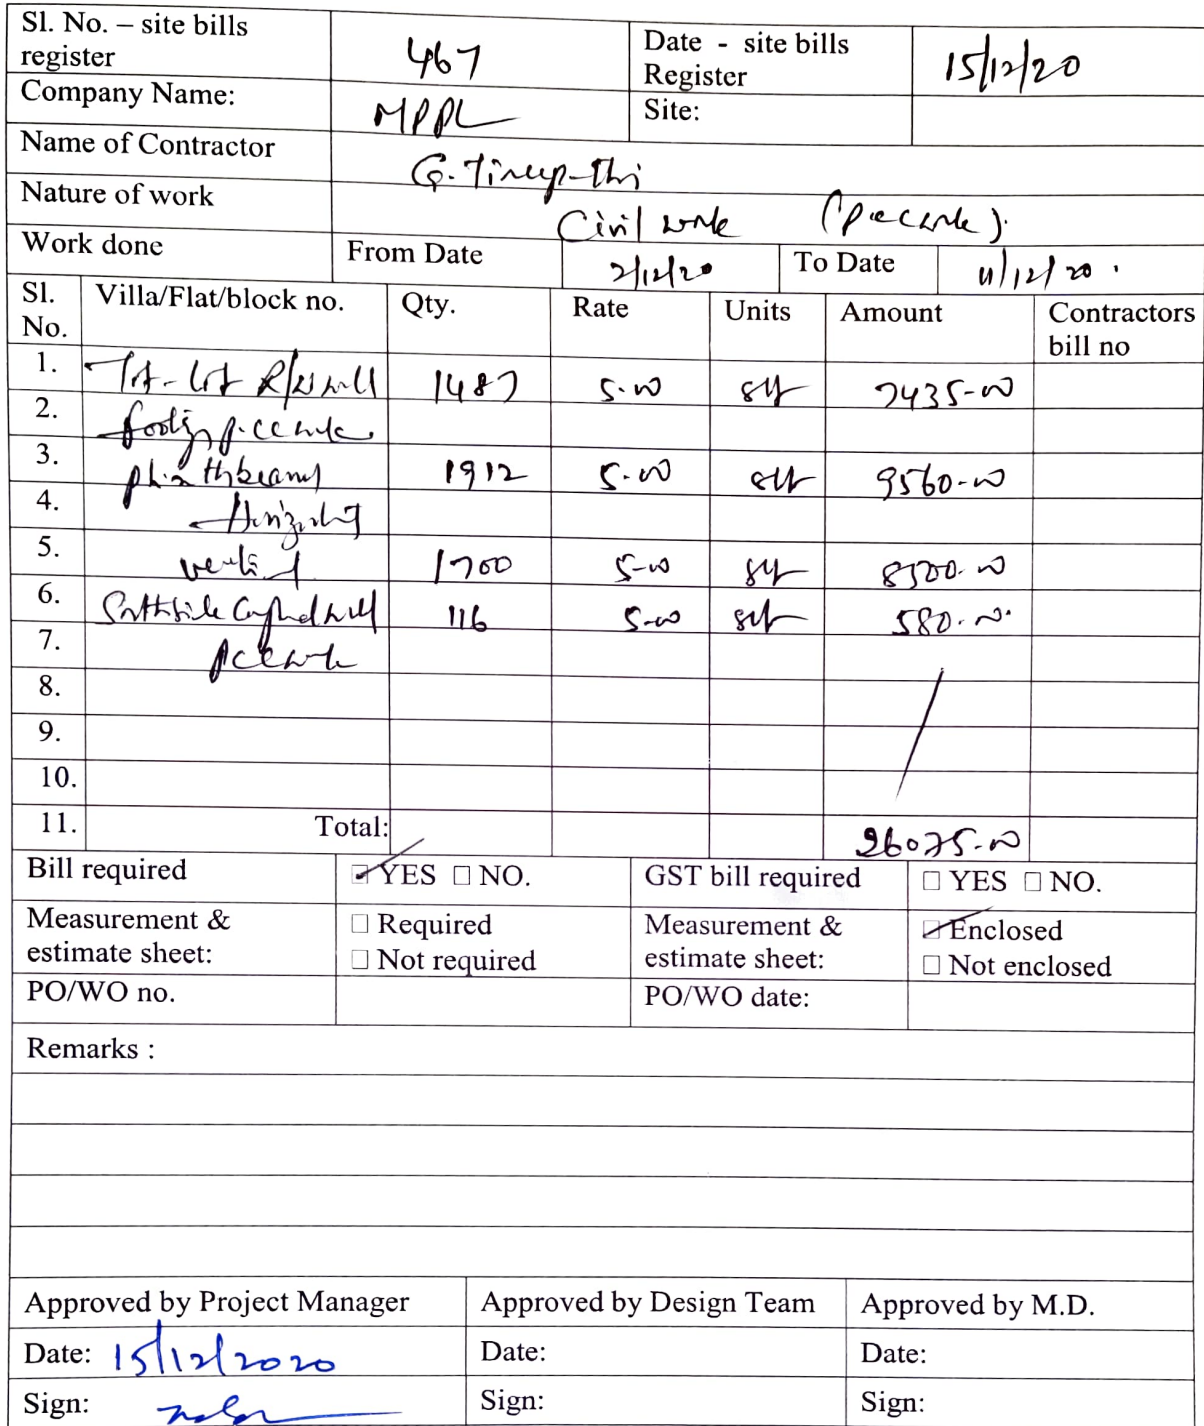 Sl. No. – site bills register 467 Date - site bills Register 15/12/20
Company Name: MPPL Site:
Name of Contractor G. Tirupathi
Nature of work Civil work (pcc work).
Work done From Date 2/12/20 To Date 11/12/20.
Sl. No. Villa/Flat/block no. Qty. Rate Units Amount Contractors bill no
1. Tot-lot R/wall 1487 5-00 sft 7435-00
2. footing p.cc work
3. plinth beams 1912 5-00 sft 9560-00
4. Horizontal
5. vertical 1700 5-00 sft 8500-00
6. Southside wall 116 5-00 sft 580-00
7. pcc work
8.
9.
10.
11. Total: 26075-00
Bill required YES NO. GST bill required YES NO.
Measurement & estimate sheet: Required Not required Measurement & estimate sheet: Enclosed Not enclosed
PO/WO no. PO/WO date:
Remarks :
Approved by Project Manager Approved by Design Team Approved by M.D.
Date: 15/12/2020 Date: Date:
Sign: Sign: Sign: